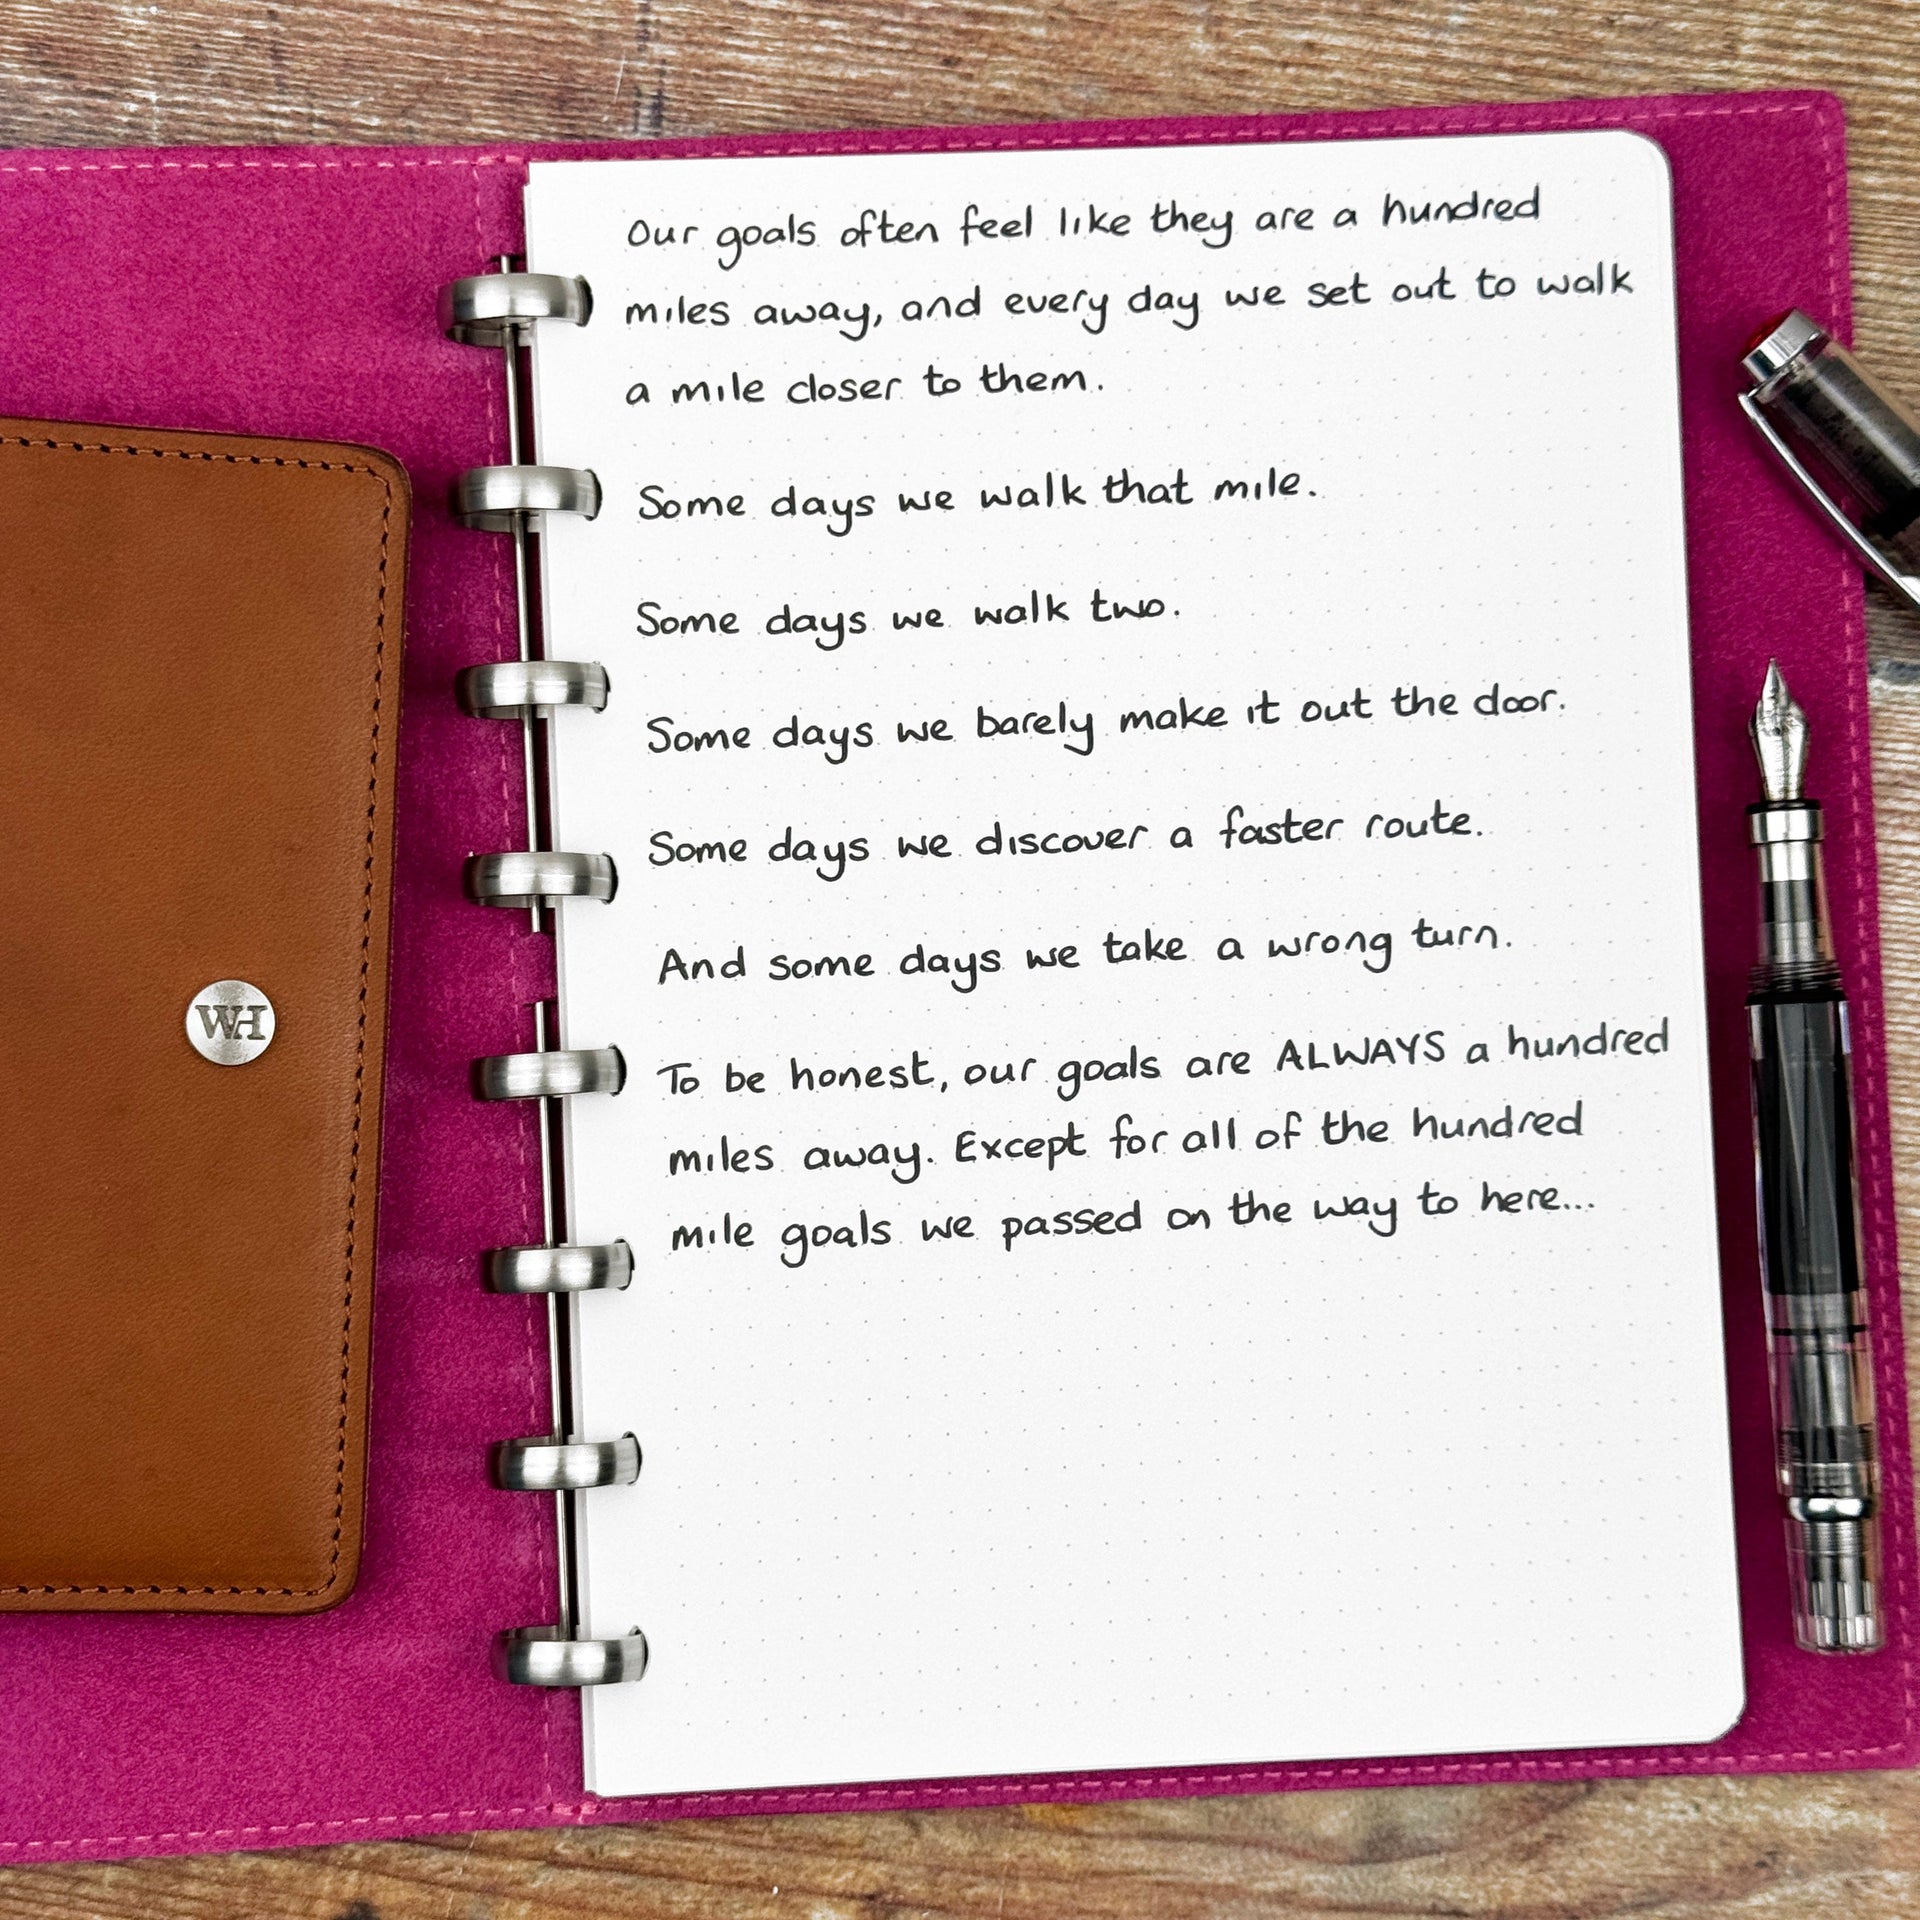 Our goals often feel like they are a hundred
miles away, and every day we set out to walk
a mile closer to them.
Some days we walk that mile.
Some days we walk two.
Some days we barely make it out the door.
Some days we discover a faster route.
And some days we take a wrong turn.
To be honest, our goals are ALWAYS a hundred
miles away. Except for all of the hundred
mile goals we passed on the way to here...
WH